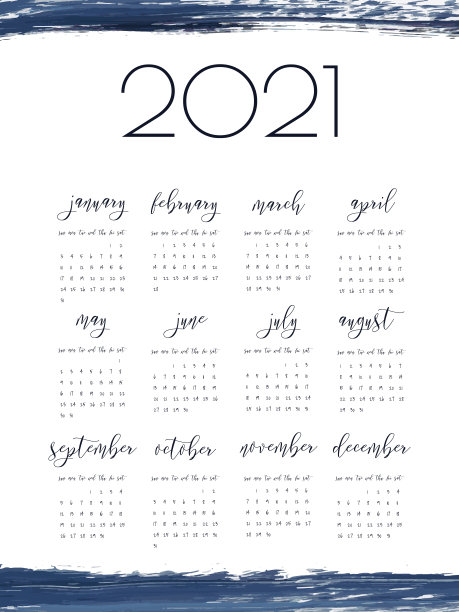 2021
january
tu wd th fr sat
1 2
3 4 5 6 7 8 9
10 11 12 13 14 15 16
17 18 19 20 21 22 23
24 25 26 27 28 29 30
31
february
tu wd th fr sat
1 2 3 4 5 6
7 8 9 10 11 12 13
14 15 16 17 18 19 20
21 22 23 24 25 26 27
28
march
tu wd th fr sat
1 2 3 4 5 6
7 8 9 10 11 12 13
14 15 16 17 18 19 20
21 22 23 24 25 26 27
28 29 30 31
april
tu wd th fr sat
1 2 3
4 5 6 7 8 9 10
11 12 13 14 15 16 17
18 19 20 21 22 23 24
25 26 27 28 29 30
may
tu wd th fr sat
1
2 3 4 5 6 7 8
9 10 11 12 13 14 15
16 17 18 19 20 21 22
23 24 25 26 27 28 29
30 31
june
tu wd th fr sat
1 2 3 4 5
6 7 8 9 10 11 12
13 14 15 16 17 18 19
20 21 22 23 24 25 26
27 28 29 30
july
tu wd th fr sat
1 2 3
4 5 6 7 8 9 10
11 12 13 14 15 16 17
18 19 20 21 22 23 24
25 26 27 28 29 30 31
august
tu wd th fr sat
1 2 3 4 5 6 7
8 9 10 11 12 13 14
15 16 17 18 19 20 21
22 23 24 25 26 27 28
29 30 31
september
tu wd th fr sat
1 2 3 4
5 6 7 8 9 10 11
12 13 14 15 16 17 18
19 20 21 22 23 24 25
26 27 28 29 30
october
tu wd th fr sat
1 2
3 4 5 6 7 8 9
10 11 12 13 14 15 16
17 18 19 20 21 22 23
24 25 26 27 28 29 30
31
november
tu wd th fr sat
1 2 3 4 5 6
7 8 9 10 11 12 13
14 15 16 17 18 19 20
21 22 23 24 25 26 27
28 29 30
december
tu wd th fr sat
1 2 3 4
5 6 7 8 9 10 11
12 13 14 15 16 17 18
19 20 21 22 23 24 25
26 27 28 29 30 31